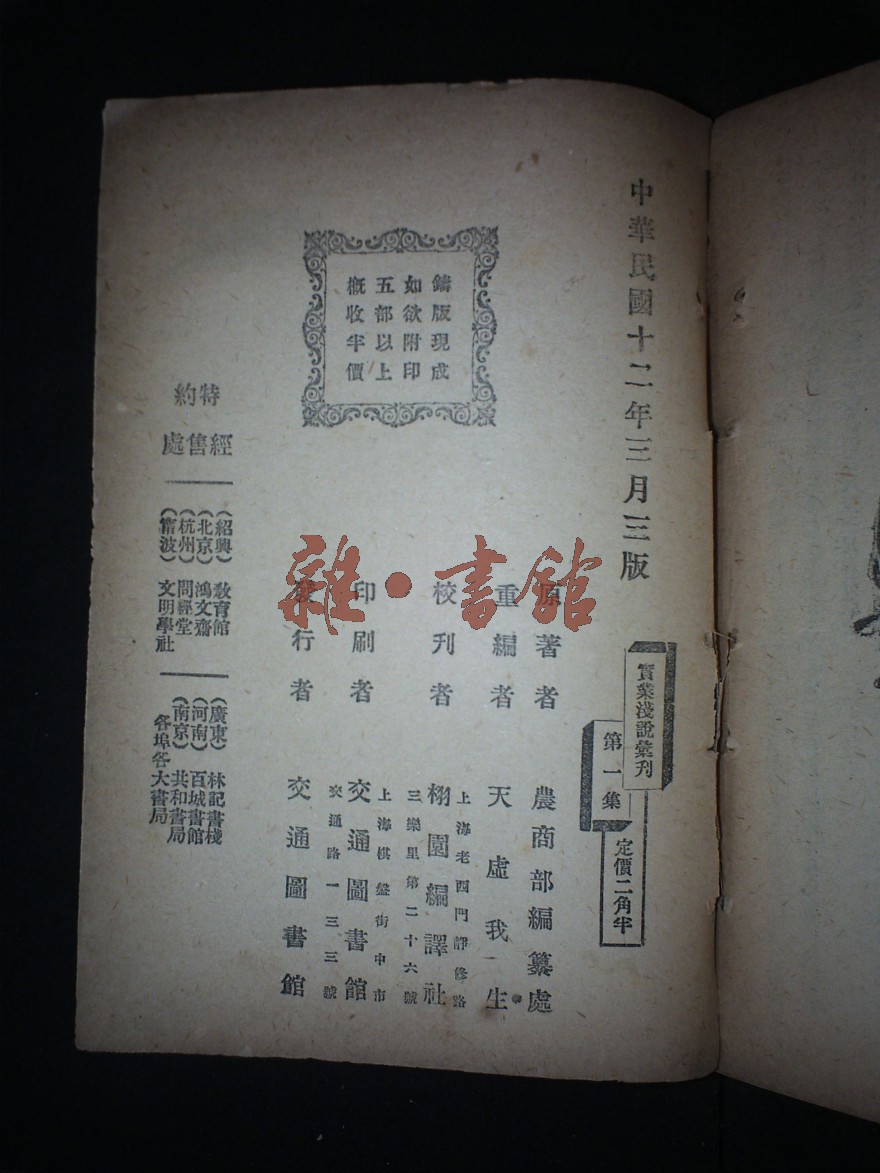 中華民國十二年三月三版
實業淺說彙刊
第一集
定價二角半
原著者 農商部編纂處
重編者 天虛我生
校刊者 栩園編譯社
上海老西門靜修路
三樂里第二十六號
印刷者 交通圖書館
上海棋盤街中市
交通路一三三號
發行者 交通圖書館
鑄版現成
如欲附印
五部以上
概收半價
特約
經售處
(紹興) 教育館
(北京) 鴻文齋
(杭州) 問經堂
(甯波) 文明學社
(廣東) 林記書棧
(河南) 百城書館
(南京) 共和書局
各埠各大書局
雜·書館